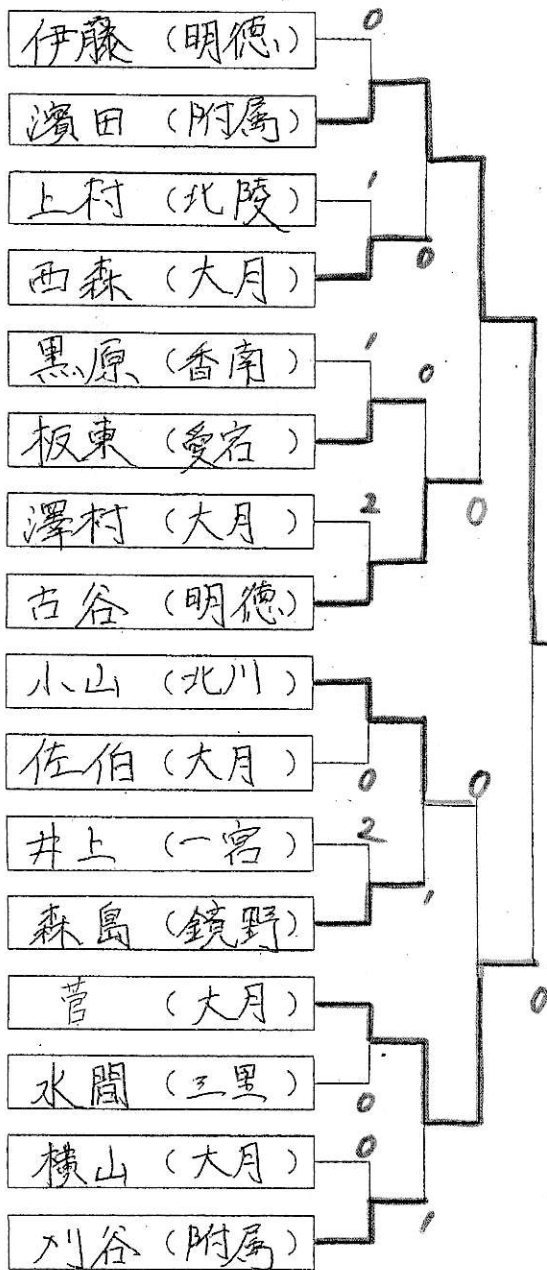 伊藤（明徳） 0
濱田（附属）
上村（北陵） 1
0
西森（大月）
黒原（香南） 1 0
板東（愛宕）
澤村（大月） 2 0
古谷（明徳）
小山（北川）
佐伯（大月） 0 0
井上（一宮） 2
森島（鏡野） 1
菅（大月） 0
水間（三里） 0
横山（大月） 0
刈谷（附属） 1